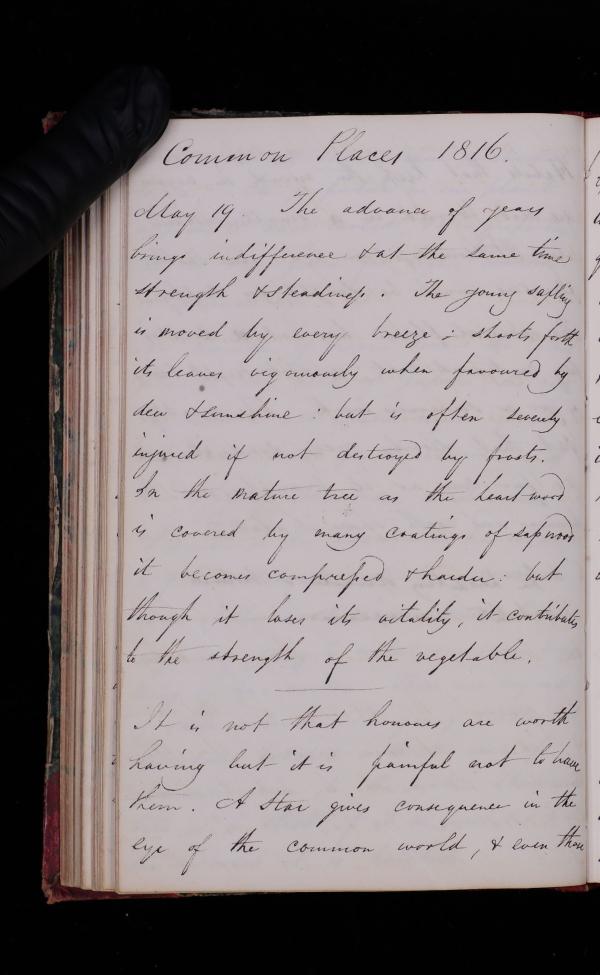 Common Places 1816.
May 19. The advance of years
brings indifference & at the same time
strength & steadiness. The young sapling
is moved by every breeze; shoots forth
its leaves vigorously when favoured by
dew & sunshine: but is often severely
injured if not destroyed by frosts.
In the mature tree as the heart wood
is covered by many coatings of sapwood
it becomes compressed & harder: but
though it loses its vitality, it contributes
to the strength of the vegetable.
It is not that honours are worth
having but it is painful not to have
them. A Star gives consequence in the
eye of the common world, & even those